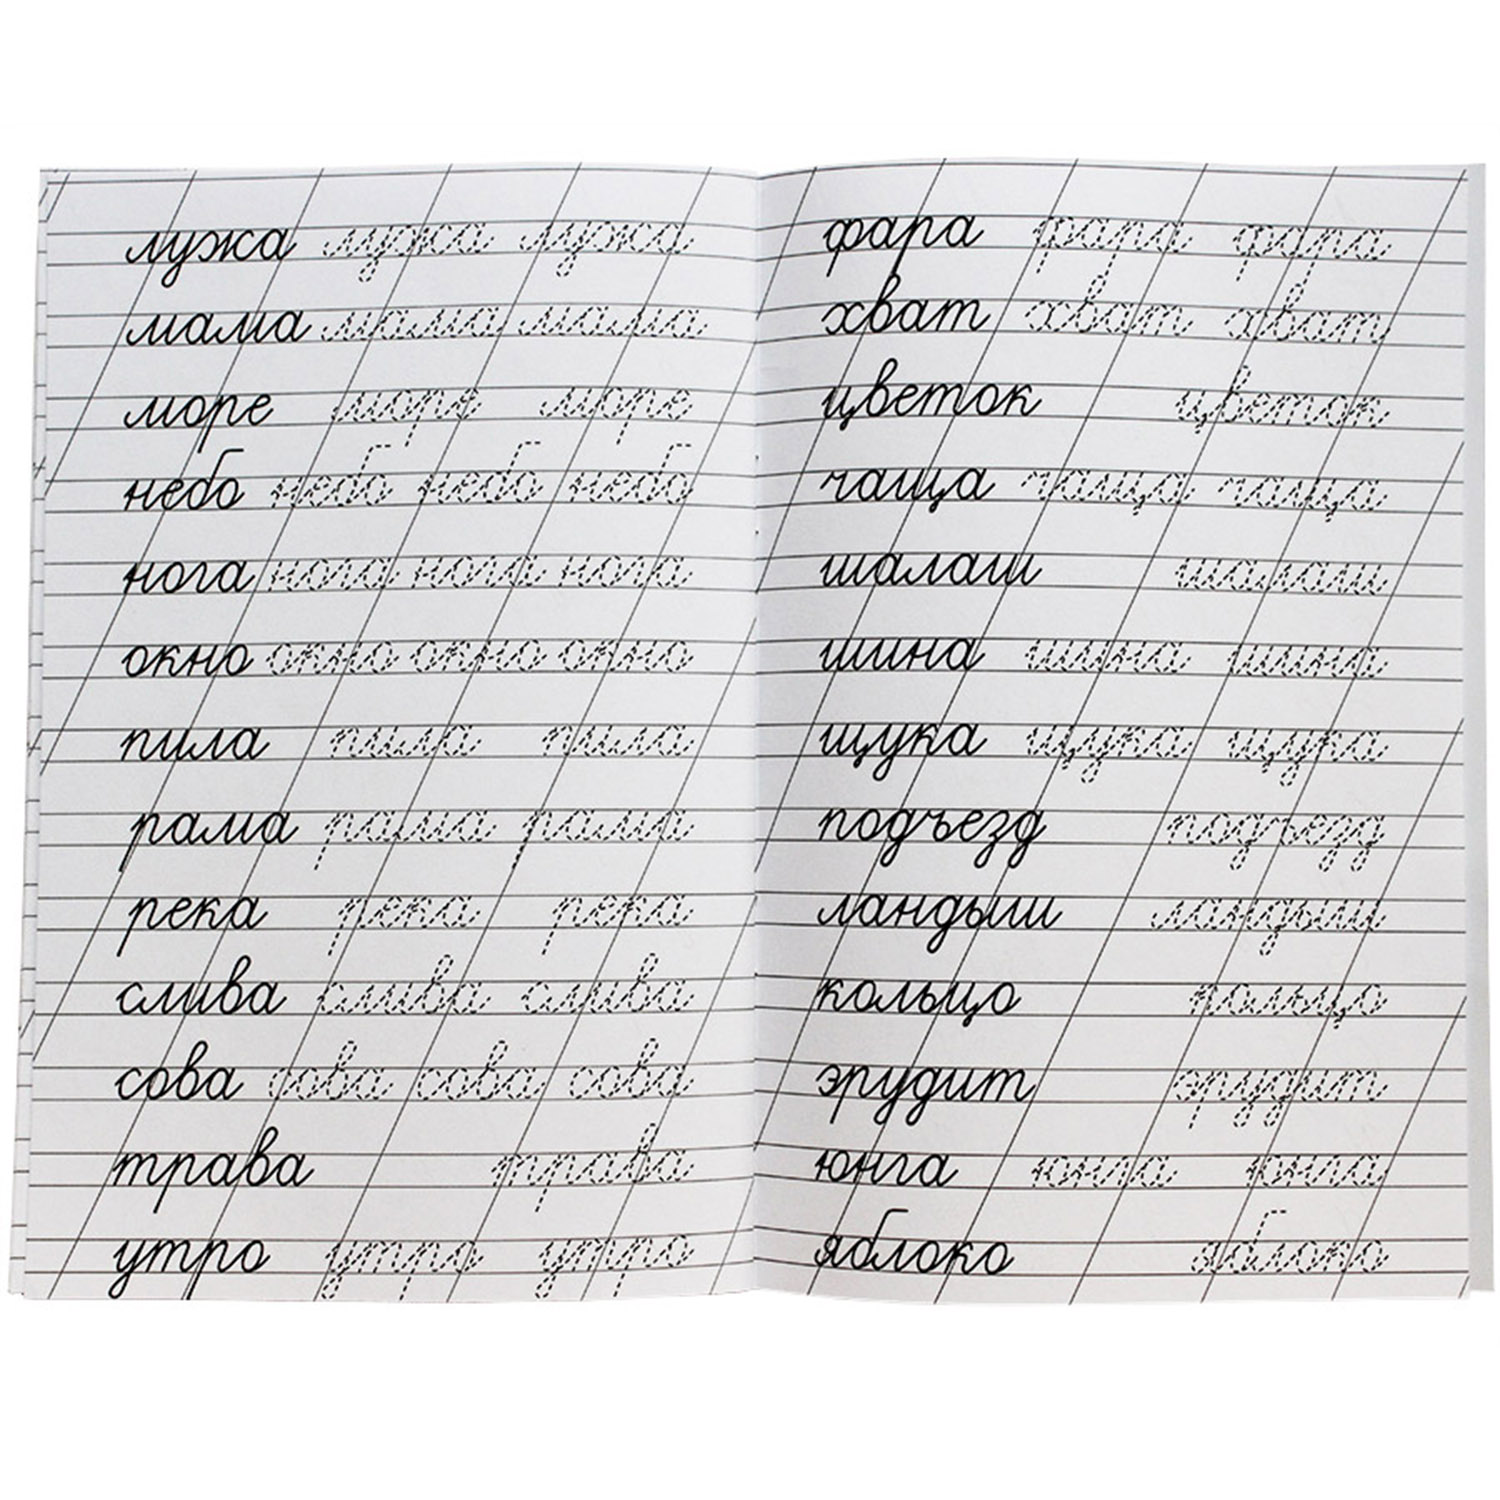 лужа лужа лужа
мама мама мама
море море море
небо небо небо небо
нога нога нога нога
окно окно окно окно
пила пила пила
рама рама рама
река река река
слива слива слива
сова сова сова сова
трава трава
утро утро утро
фара фара фара
хват хват хват
цветок цветок
чаща чаща чаща
шалаш шалаш
шина шина шина
щука щука щука
подъезд подъезд
ландыш ландыш
кольцо кольцо
эрудит эрудит
юнга юнга юнга
яблоко яблоко